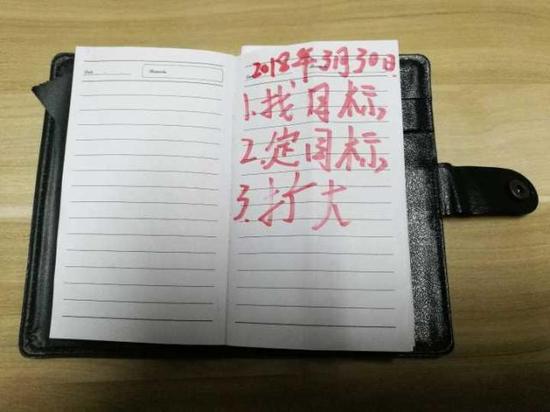 2018年3月30日
1.找目标,
2.定目标,
3.打大